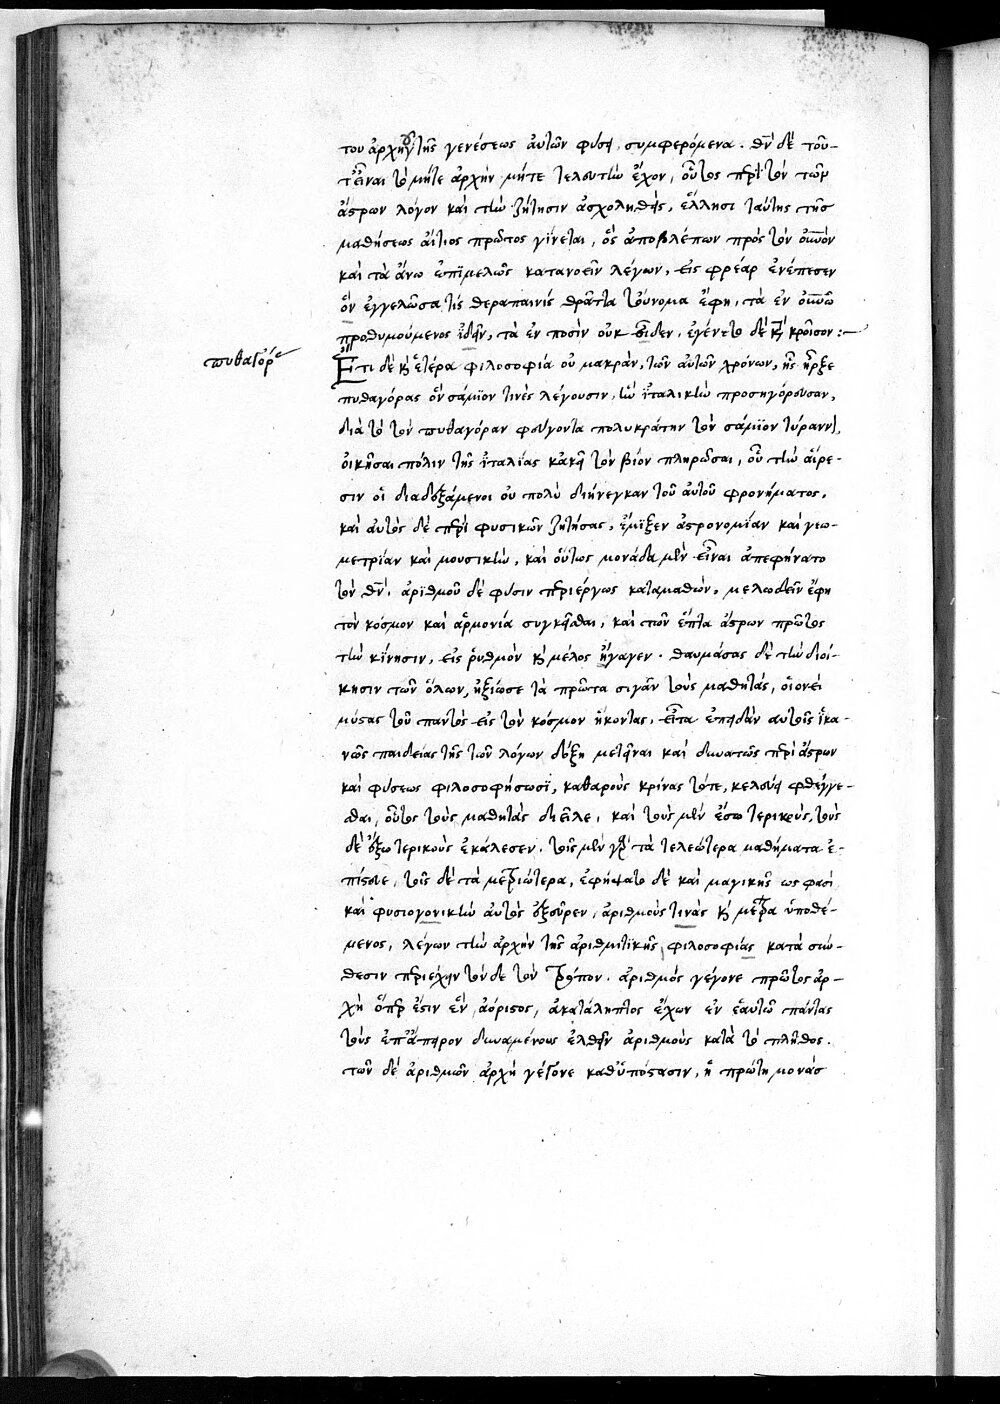 του ἀρχηγοῦ τῆς γενέσεως αὐτῶν φύσει συμφερόμενα. θεὸν δὲ τοῦ-
τ' εἶναι τὸ μήτε ἀρχὴν μήτε τελευτὴν ἔχον, οὗτος περὶ τὸν τῶν
ἄστρων λόγον καὶ τὴν ζήτησιν ἀσχοληθεὶς, ἕλλησι ταύτης τῆς
μαθήσεως αἴτιος πρῶτος γίνεται, ὃς ἀποβλέπων πρὸς τὸν οὐνὸν
καὶ τὰ ἄνω ἐπϊμελῶς κατανοεῖν λέγων, εἰς φρέαρ ἐνέπεσεν
ὃν ἐγγελῶσα τίς θεραπαινὶς θρᾶττα τοὔνομα ἔφη, τὰ ἐν οὐνῶ
προθυμούμενος ἰδεῖν, τὰ ἐν ποσὶν οὐκ εἶδεν. ἐγένετο δὲ κατὰ κροῖσον:
πυθαγόρας
Ἔτι δὲ καὶ ἑτέρα φιλοσοφία οὐ μακρὰν, τῶν αὐτῶν χρόνων, ἧς ἦρξε
πυθαγόρας ὃν σάμϊον τινὲς λέγουσιν, ἣν ἰταλικὴν προσηγόρευσαν,
διὰ τὸ τὸν πυθαγόραν φεύγοντα πολυκράτην τὸν σάμϊον τύραννον,
οἰκῆσαι πόλιν τῆς ἰταλίας κἀκεῖ τὸν βίον πληρῶσαι, οὗ τὴν αἵρε-
σιν οἱ διαδεξάμενοι οὐ πολὺ διήνεγκαν τοῦ αὐτοῦ φρονήματος.
καὶ αὐτὸς δὲ περὶ φυσικῶν ζητήσας, ἔμιξεν ἀστρονομίαν καὶ γεω-
μετρίαν καὶ μουσικὴν, καὶ οὕτως μονάδα μὲν εἶναι ἀπεφήνατο
τὸν θεὸν, ἀριθμοῦ δὲ φύσιν περιέργως καταμαθὼν, μελωδεῖν ἔφη
τὸν κόσμον καὶ ἁρμονία συγκεῖσθαι, καὶ τῶν ἑπτὰ ἄστρων πρῶτος
τὴν κίνησιν, εἰς ῥυθμὸν καὶ μέλος ἤγαγεν. θαυμάσας δὲ τὴν διοί-
κησιν τῶν ὅλων, ἠξίωσε τὰ πρῶτα σιγᾶν τοὺς μαθητὰς, οἱονεὶ
μύστας τοῦ παντὸς εἰς τὸν κόσμον ἥκοντας. εἶτα ἐπειδὰν αὐτοῖς ἱκα-
νῶς παιδείας τῆς τῶν λόγων δόξη μετεῖναι καὶ δυνατῶς περὶ ἄστρων
καὶ φύσεως φιλοσοφήσωσϊ, καθαροὺς κρίνας τότε, κελεύει φθέγγε-
σθαι, οὗτος τοὺς μαθητὰς διεῖλε, καὶ τοὺς μὲν ἐσωτερικοὺς, τοὺς
δὲ ἐξωτερικοὺς ἐκάλεσεν. τοῖς μὲν γὰρ τὰ τελεώτερα μαθήματα ἐ-
πίστευε, τοῖς δὲ τὰ μετριώτερα, ἐφήψατο δὲ καὶ μαγικῆς ὡς φασὶ
καὶ φυσιογονικὴν αὐτὸς ἐξεῦρεν, ἀριθμούς τινὰς καὶ μέτρα ὑποθέ-
μενος, λέγων τὴν ἀρχὴν τῆς ἀριθμιτϊκῆς φιλοσοφίας κατὰ σύν-
θεσιν περιέχειν τόνδε τὸν τρόπον. ἀριθμὸς γέγονε πρῶτος ἀρ-
χὴ ὅπερ ἐστὶν ἓν, ἀόριστος, ἀκατάληπτος ἔχων ἐν ἑαυτῶ πάντας
τοὺς ἐπ' ἄπειρον δυναμένους ἐλθεῖν ἀριθμοὺς κατὰ τὸ πλῆθος.
τῶν δὲ ἀριθμῶν ἀρχὴ γέγονε καθ' ὑπόστασιν, ἡ πρώτη μονὰς